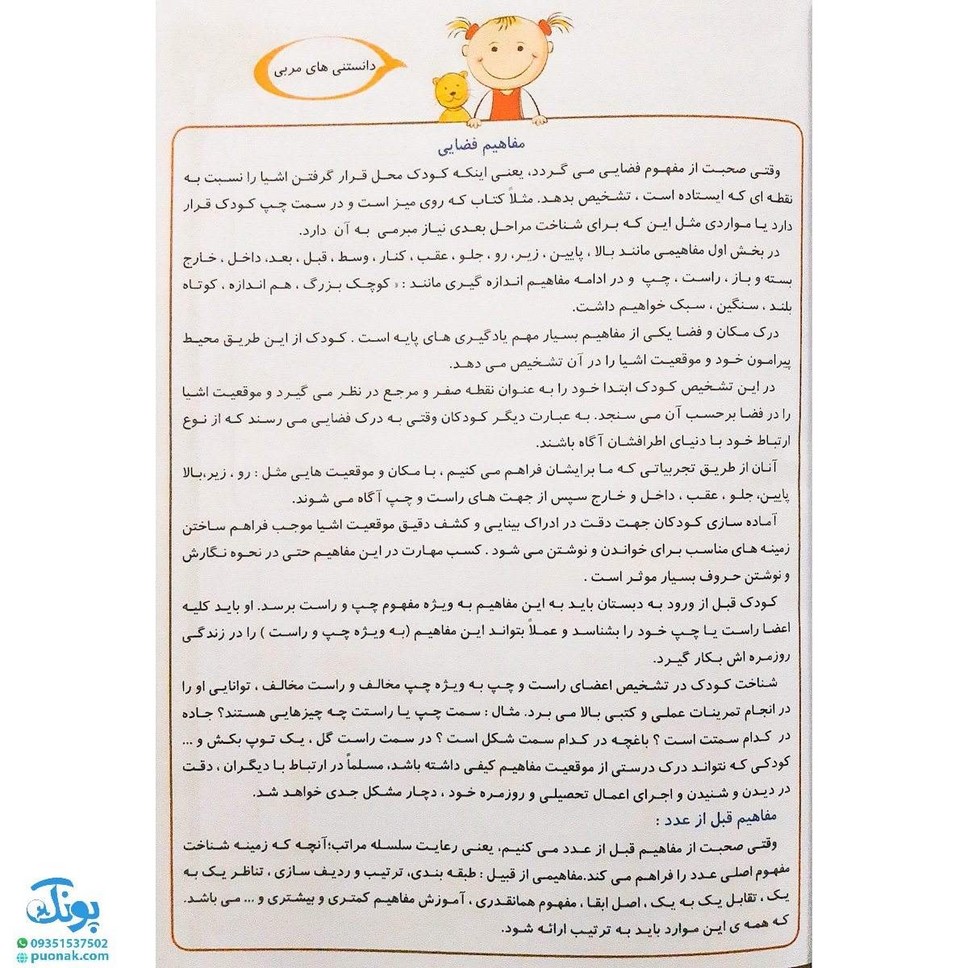 دانستنی های مربی
مفاهیم فضایی
وقتی صحبت از مفهوم فضایی می گردد، یعنی اینکه کودک محل قرار گرفتن اشیا را نسبت به
نقطه ای که ایستاده است ، تشخیص بدهد. مثلاً کتاب که روی میز است و در سمت چپ کودک قرار
دارد یا مواردی مثل این که برای شناخت مراحل بعدی نیاز مبرمی به آن دارد.
در بخش اول مفاهیمی مانند بالا ، پایین ، زیر، رو ، جلو ، عقب ، کنار ، وسط ، قبل ، بعد، داخل ، خارج
بسته و باز ، راست ، چپ و در ادامه مفاهیم اندازه گیری مانند : « کوچک بزرگ ، هم اندازه ، کوتاه
بلند ، سنگین ، سبک خواهیم داشت.
درک مکان و فضا یکی از مفاهیم بسیار مهم یادگیری های پایه است . کودک از این طریق محیط
پیرامون خود و موقعیت اشیا را در آن تشخیص می دهد.
در این تشخیص کودک ابتدا خود را به عنوان نقطه صفر و مرجع در نظر می گیرد و موقعیت اشیا
را در فضا برحسب آن می سنجد. به عبارت دیگر کودکان وقتی به درک فضایی می رسند که از نوع
ارتباط خود با دنیای اطرافشان آگاه باشند.
آنان از طریق تجربیاتی که ما برایشان فراهم می کنیم ، با مکان و موقعیت هایی مثل : رو ، زیر،بالا
پایین، جلو ، عقب ، داخل و خارج سپس از جهت های راست و چپ آگاه می شوند.
آماده سازی کودکان جهت دقت در ادراک بینایی و کشف دقیق موقعیت اشیا موجب فراهم ساختن
زمینه های مناسب برای خواندن و نوشتن می شود . کسب مهارت در این مفاهیم حتی در نحوه نگارش
و نوشتن حروف بسیار موثر است .
کودک قبل از ورود به دبستان باید به این مفاهیم به ویژه مفهوم چپ و راست برسد. او باید کلیه
اعضا راست یا چپ خود را بشناسد و عملاً بتواند این مفاهیم (به ویژه چپ و راست ) را در زندگی
روزمره اش بکار گیرد.
شناخت کودک در تشخیص اعضای راست و چپ به ویژه چپ مخالف و راست مخالف ، توانایی او را
در انجام تمرینات عملی و کتبی بالا می برد. مثال : سمت چپ یا راستت چه چیزهایی هستند؟ جاده
در کدام سمتت است ؟ باغچه در کدام سمت شکل است ؟ در سمت راست گل ، یک توپ بکش و ...
کودکی که نتواند درک درستی از موقعیت مفاهیم کیفی داشته باشد، مسلماً در ارتباط با دیگران ، دقت
در دیدن و شنیدن و اجرای اعمال تحصیلی و روزمره خود ، دچار مشکل جدی خواهد شد.
مفاهیم قبل از عدد :
وقتی صحبت از مفاهیم قبل از عدد می کنیم، یعنی رعایت سلسله مراتب؛آنچه که زمینه شناخت
مفهوم اصلی عدد را فراهم می کند.مفاهیمی از قبیل : طبقه بندی، ترتیب و ردیف سازی ، تناظر یک به
یک ، تقابل یک به یک ، اصل ابقا ، مفهوم همانقدری ، آموزش مفاهیم کمتری و بیشتری و ... می باشد.
که همه ی این موارد باید به ترتیب ارائه شود.
پونک
09351537502
puonak.com